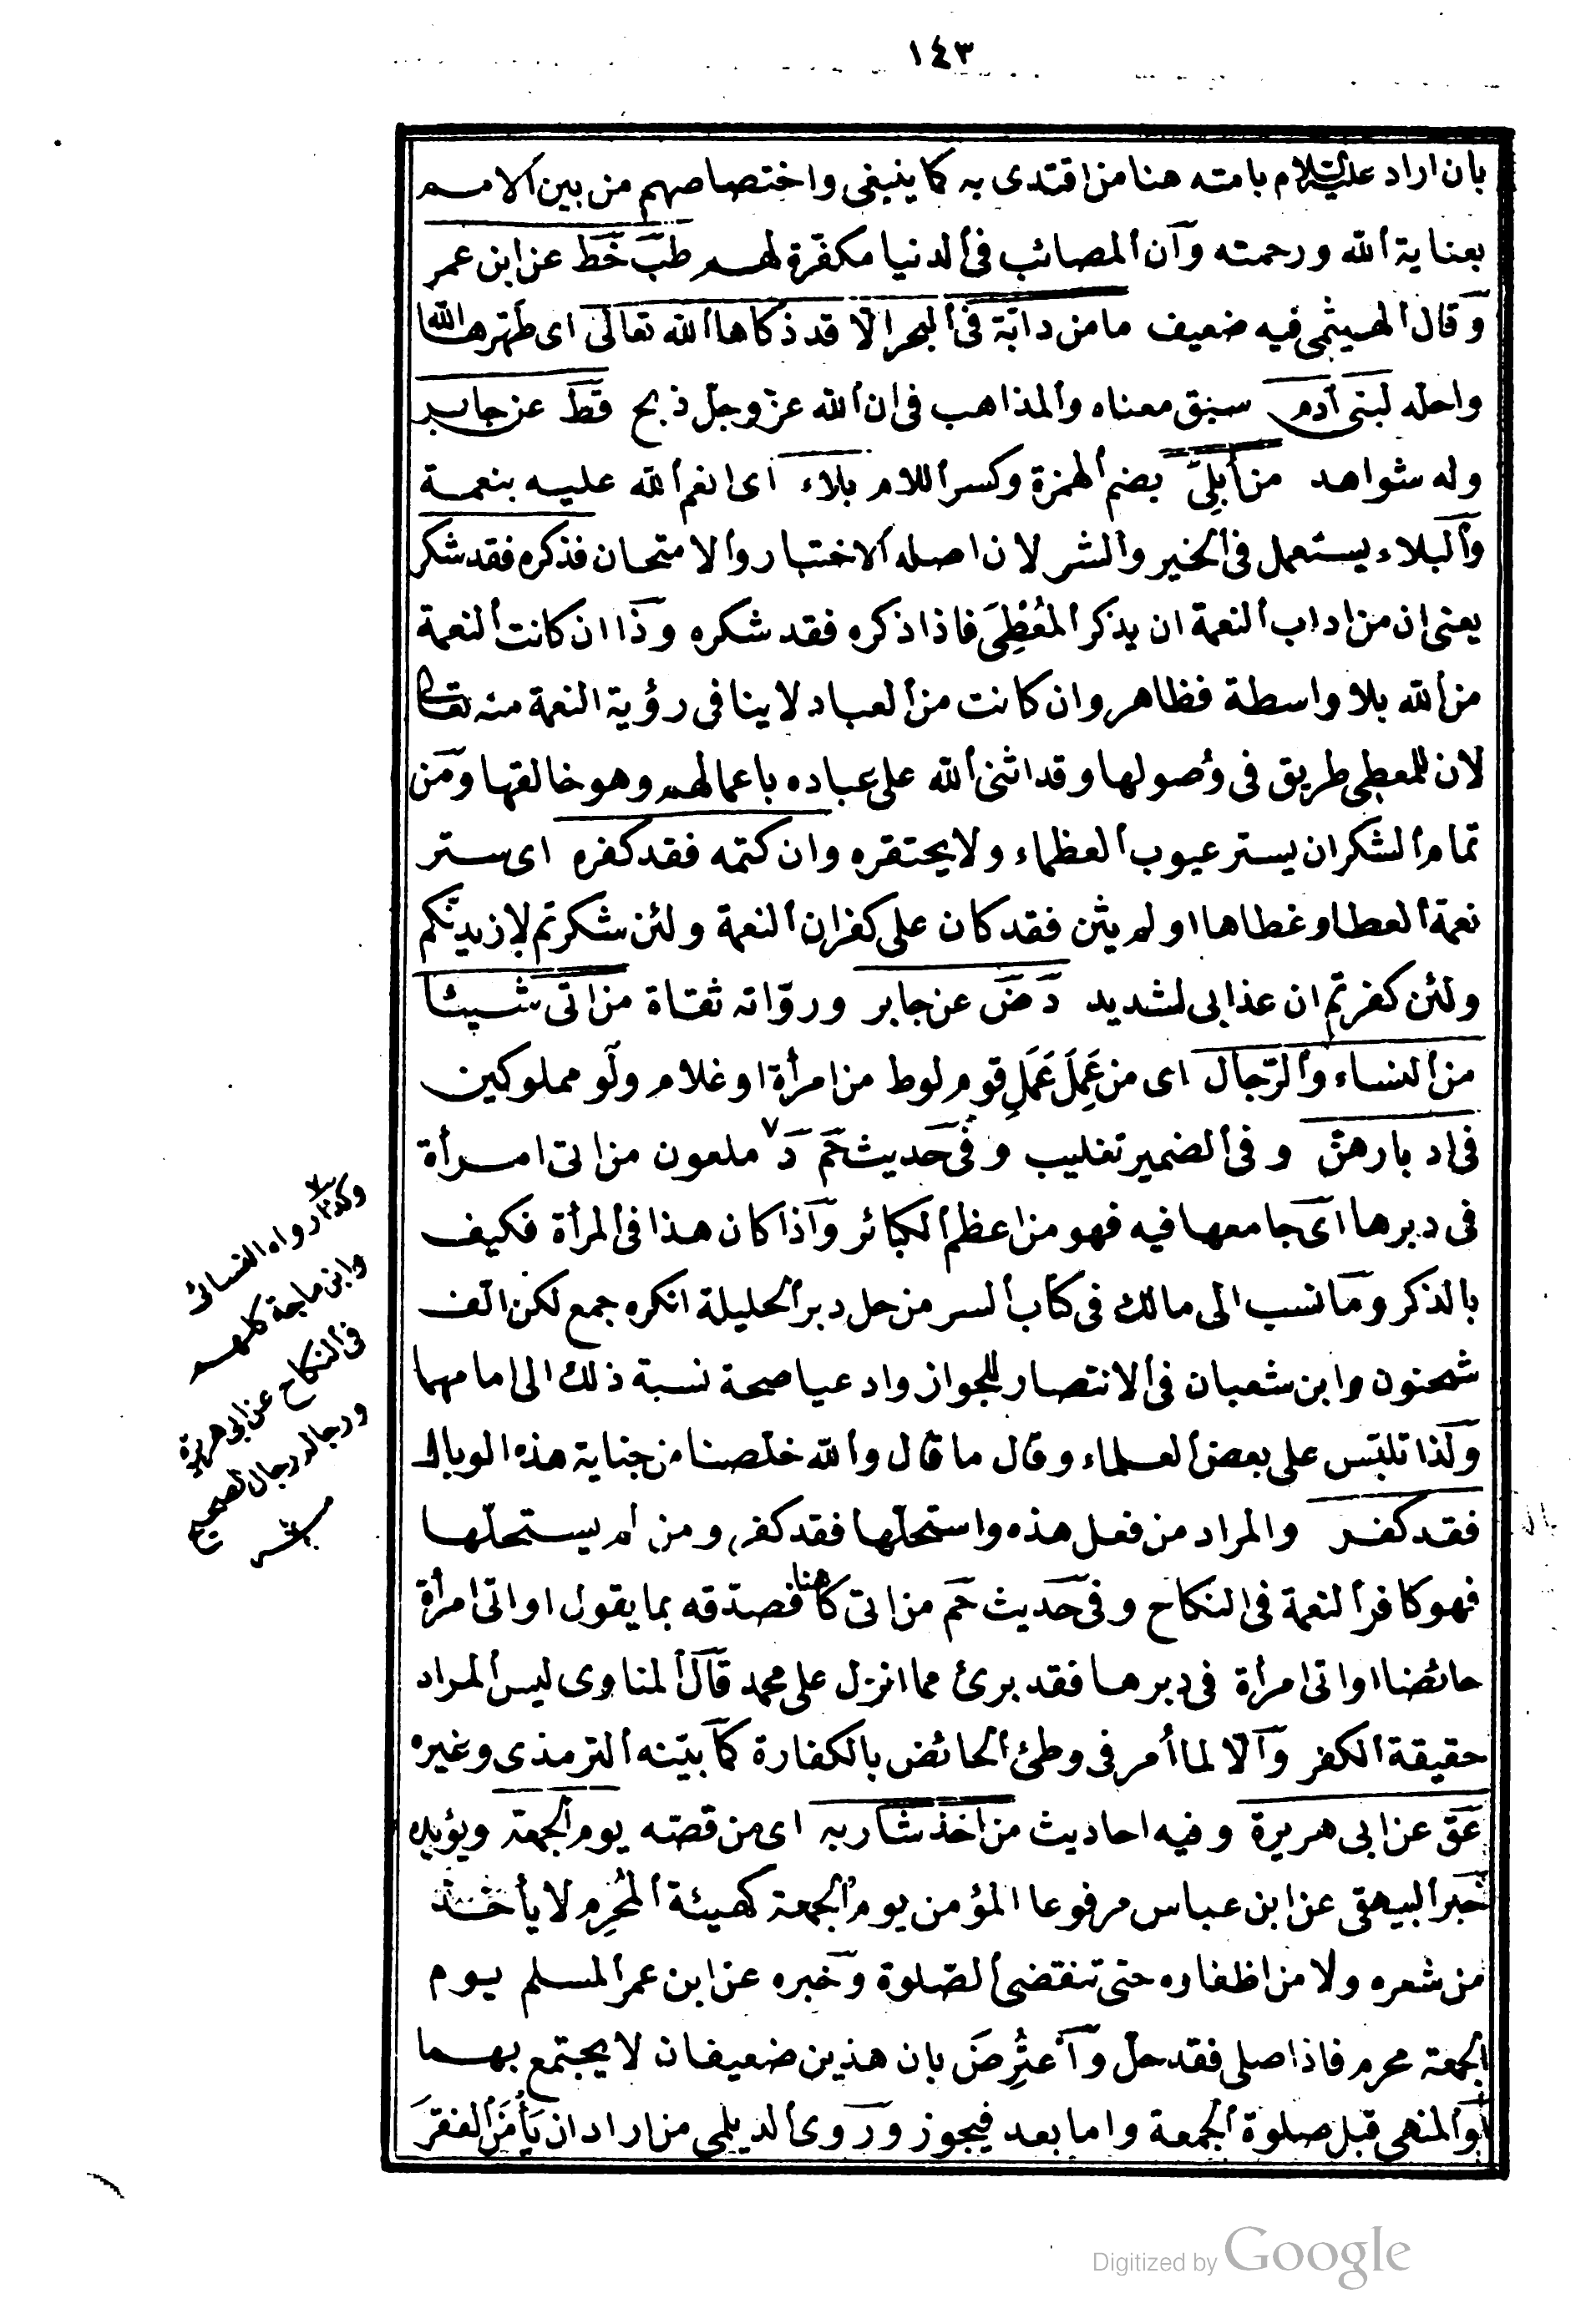 ١٤٣
بان اراد عليه السلام بامته هنا من اقتدى به كما ينبغى واختصاصهم من بين الامم
بعناية الله ورحمته وان المصائب فى الدنيا مكفرة لهم طب خط عن ابن عمر
وقال الهيثمى فيه ضعيف ما من دابة فى البحر الا قد ذكاها الله تعالى اى طهرها الله
واحله لبنى آدم سبق معناه والمذاهب فى ان الله عز وجل ذبح قط عن جابر
وله شواهد من أُبلِىَ بضم الهمزة وكسر اللام بلاء اى انعم الله عليه بنعمة
والبلاء يستعمل فى الخير والشر لان اصله الاختبار والامتحان فذكره فقد شكر
يعنى ان من اداب النعمة ان يذكر المُعْطِىَ فاذا ذكره فقد شكره وذا ان كانت النعمة
من الله بلا واسطة فظاهر وان كانت من العباد لاينافى رؤية النعمة منه تعالى
لان للمعطى طريق فى وُصولها وقد اثنى الله على عباده باعمالهم وهو خالقها ومن
تمام الشكر ان يستر عيوب العظماء ولا يحتقره وان كتمه فقد كفره اى ستر
نعمة العطا وغطاها او لم يثن فقد كان على كفران النعمة ولئن شكرتم لازيدنكم
ولئن كفرتم ان عذابى لشديد د ض عن جابر وروّاته ثقاة من اتى شيئا
من النساء والرّجال اى من عَمِلَ عَمَلِ قوم لوط من امرأة او غلام ولو مملوكين
فى ادبارهن وفى الضمير تغليب وفى حديث حم د ٧ ملعون من اتى امرأة
فى دبرها اى جامعها فيه فهو من اعظم الكبائر واذا كان هذا فى المرأة فكيف
بالذكر وما نسب الى مالك فى كتاب السر من حل دبر الحليلة انكره جمع لكن الف
شحنون وابن شعبان فى الانتصار للجواز وادعيا صحة نسبة ذلك الى امامهما
ولذا تلبّس على بعض العلماء وقال ما قال والله خلصنا من جناية هذه الوبال
فقد كفر والمراد من فعل هذه واستحلّها فقد كفر ومن لم يستحلّها
فهو كافر النعمة فى النكاح وفى حديث حم من اتى كاهنا فصدّقه بما يقول او اتى امرأة
حائضا او اتى امرأة فى دبرها فقد برئ مما انزل على محمد قال المناوى ليس المراد
حقيقة الكفر والا لما أمر فى وطئ الحائض بالكفارة كما بيّنه الترمذى وغيره
عق عن ابى هريرة وفيه احاديث من اخذ شاربه اى من قصّه يوم الجمعة ويؤيده
خبر البيهقى عن ابن عباس مرفوعا المؤمن يوم الجمعة كهيئة المُحْرِم لا يأخذ
من شعره ولا من اظفاره حتى تنقضى الصّلوة وخبره عن ابن عمر المسلم يوم
الجمعة محرم فاذا صلى فقد حل وأُعتُرِضَ بان هذين ضعيفان لا يجتمع بهما
او المنهى قبل صلوة الجمعة واما بعد فيجوز وروى الديلمى من اراد ان يَأْمَنَ الفقرَ
٧
وكذا رواه النسائى
وابن ماجة كلهم
فى النكاح عن ابى هريرة
ورجاله رجال الصحيح
Digitized by Google